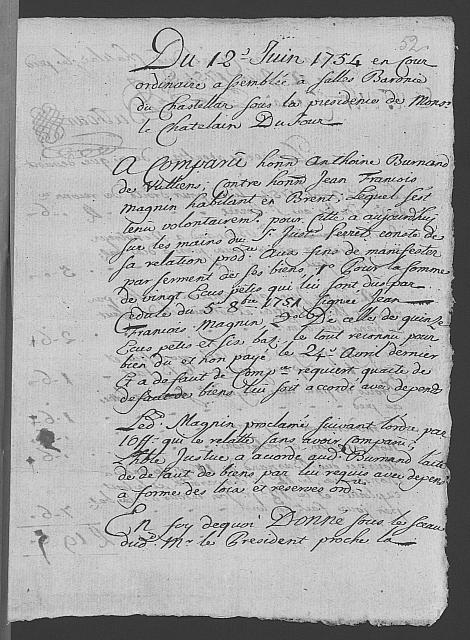 52
Du 12e Juin 1754 en Cour
ordinaire assemblée à Salles Baronie
du Chastellar sous la presidence de Monsr
le Chatelain Du Four
A Comparu honn Anthoine Burnand
de Vulliens, Contre honn Jean François
Magnin habitant en Brent, Lequel s'est
tenu volontairemt pour cité a aujourdhuy
sur les mains du Sr Justr Ferret conste de
sa relation prode Aux fins de manifester
par serment de ses biens, 1o Pour la somme
de vingt Ecus petis qui lui sont dus par
Cedule du 5e 8bre 1751 signée Jean
François Magnin 2o De celle de quinze
Ecus petis et six baz le tout reconnu pour
bien du et non payé le 24e Avril dernier
Et a defaut de Compon requiert qu'acte de
defaut de biens lui soit accordé avec depends
Led. Magnin proclamé suivant l'ordre par
l'Off. qui le relate sans avoir comparu;
L'hble Justice a acordé aud. Burnand l'acte
de defaut de biens par lui requis avec depens
à forme des loix et reserves ordres
En foy dequoi Donné sous le sceau
dud. Mr le President proche la